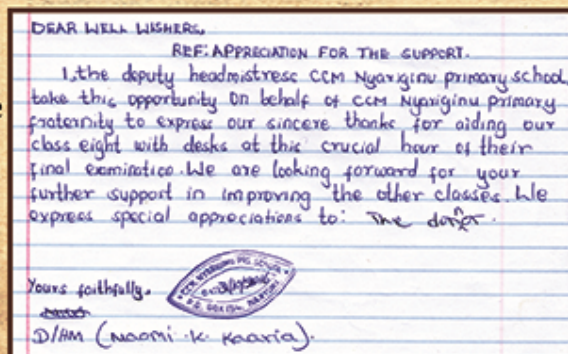 DEAR WELL WISHERS,
REF: APPRECIATION FOR THE SUPPORT.
I, the deputy headmistress CCM Nyariginu primary school,
take this opportunity on behalf of CCM Nyariginu primary
fraternity to express our sincere thanks for aiding our
class eight with desks at this crucial hour of their
final examination. We are looking forward for your
further support in improving the other classes. We
express special appreciations to: The donor.
Yours faithfully.
D/HM (Naomi .K. Kaaria).